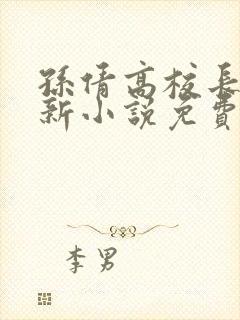 孫倩高校長
新小説免費
李男